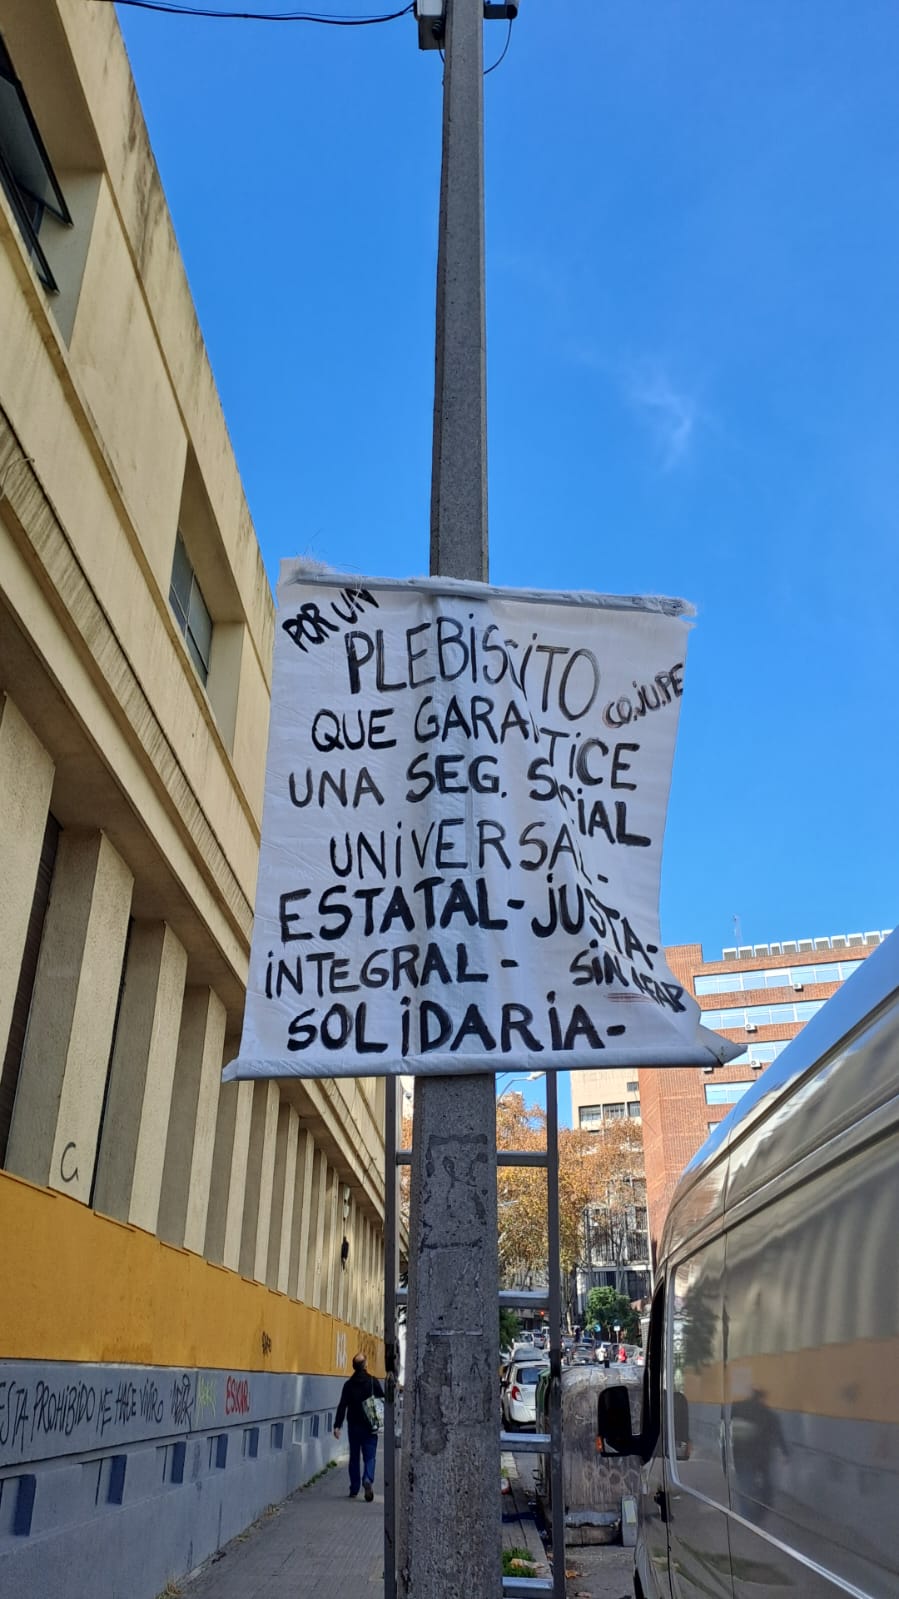 POR UN
PLEBISCITO
CO.JU.PE
QUE GARANTICE
UNA SEG. SOCIAL
UNIVERSAL-
ESTATAL-JUSTA-
INTEGRAL-
SIN AFAP
SOLIDARIA-
ESTA PROHIBIDO ME HACE